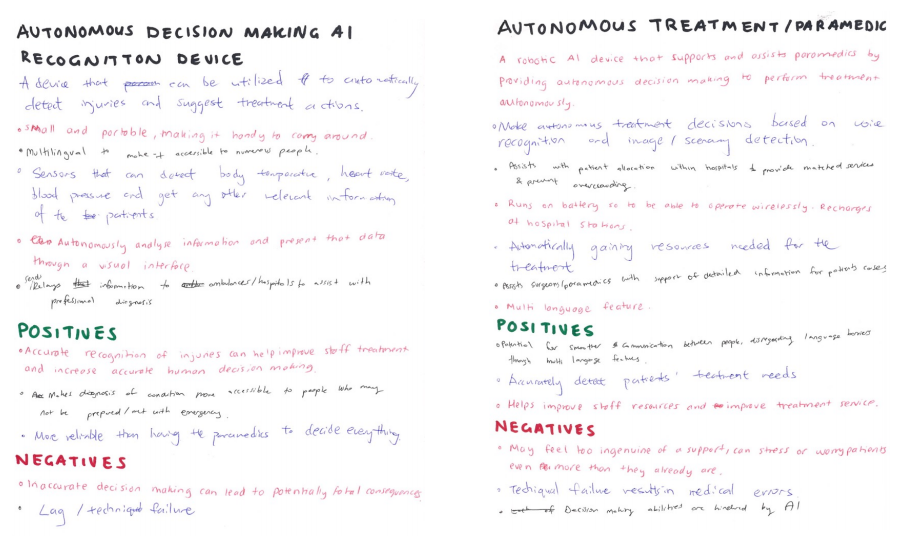 AUTONOMOUS DECISION MAKING AI
RECOGNITION DEVICE
A device that can be utilized to automatically
detect injuries and suggest treatment actions.
• Small and portable, making it handy to carry around.
• Multilingual to make it accessible to numerous people.
• Sensors that can detect body temperature, heart rate,
blood pressure and get any other relevant information
of the patients
• Autonomously analyse information and present that data
through a visual interface
• sends/Relays information to ambulances/hospitals to assist with
professional diagnosis
POSITIVES
• Accurate recognition of injuries can help improve staff treatment
and increase accurate human decision making.
• Makes diagnosis of condition more accessible to people who may
not be prepared/met with emergency.
• More reliable than having the paramedics to decide everything.
NEGATIVES
• Inaccurate decision making can lead to potentially fatal consequences
• Lag / technique failure
AUTONOMOUS TREATMENT/PARAMEDIC
A robotic AI device that supports and assists paramedics by
providing autonomous decision making to perform treatment
autonomously.
• Make autonomous treatment decisions based on voice
recognition and image / scenery detection.
• Assists with patient allocation within hospitals to provide matched services
& prevent overcrowding.
• Runs on battery so to be able to operate wirelessly. Recharges
at hospital stations.
• Automatically gaining resources needed for the
treatment
• Assists surgeons/paramedics with support of detailed information for patients cases
• Multi language feature.
POSITIVES
• Potential for smoother communication between people, disregarding language barriers
though multi language feature.
• Accurately detect patients' treatment needs
• Helps improve staff resources and improve treatment service.
NEGATIVES
• May feel too ingenuine of a support, can stress or worry patients
even more than they already are.
• Techiqual failure results in medical errors
• Decision making abilities are hindered by AI